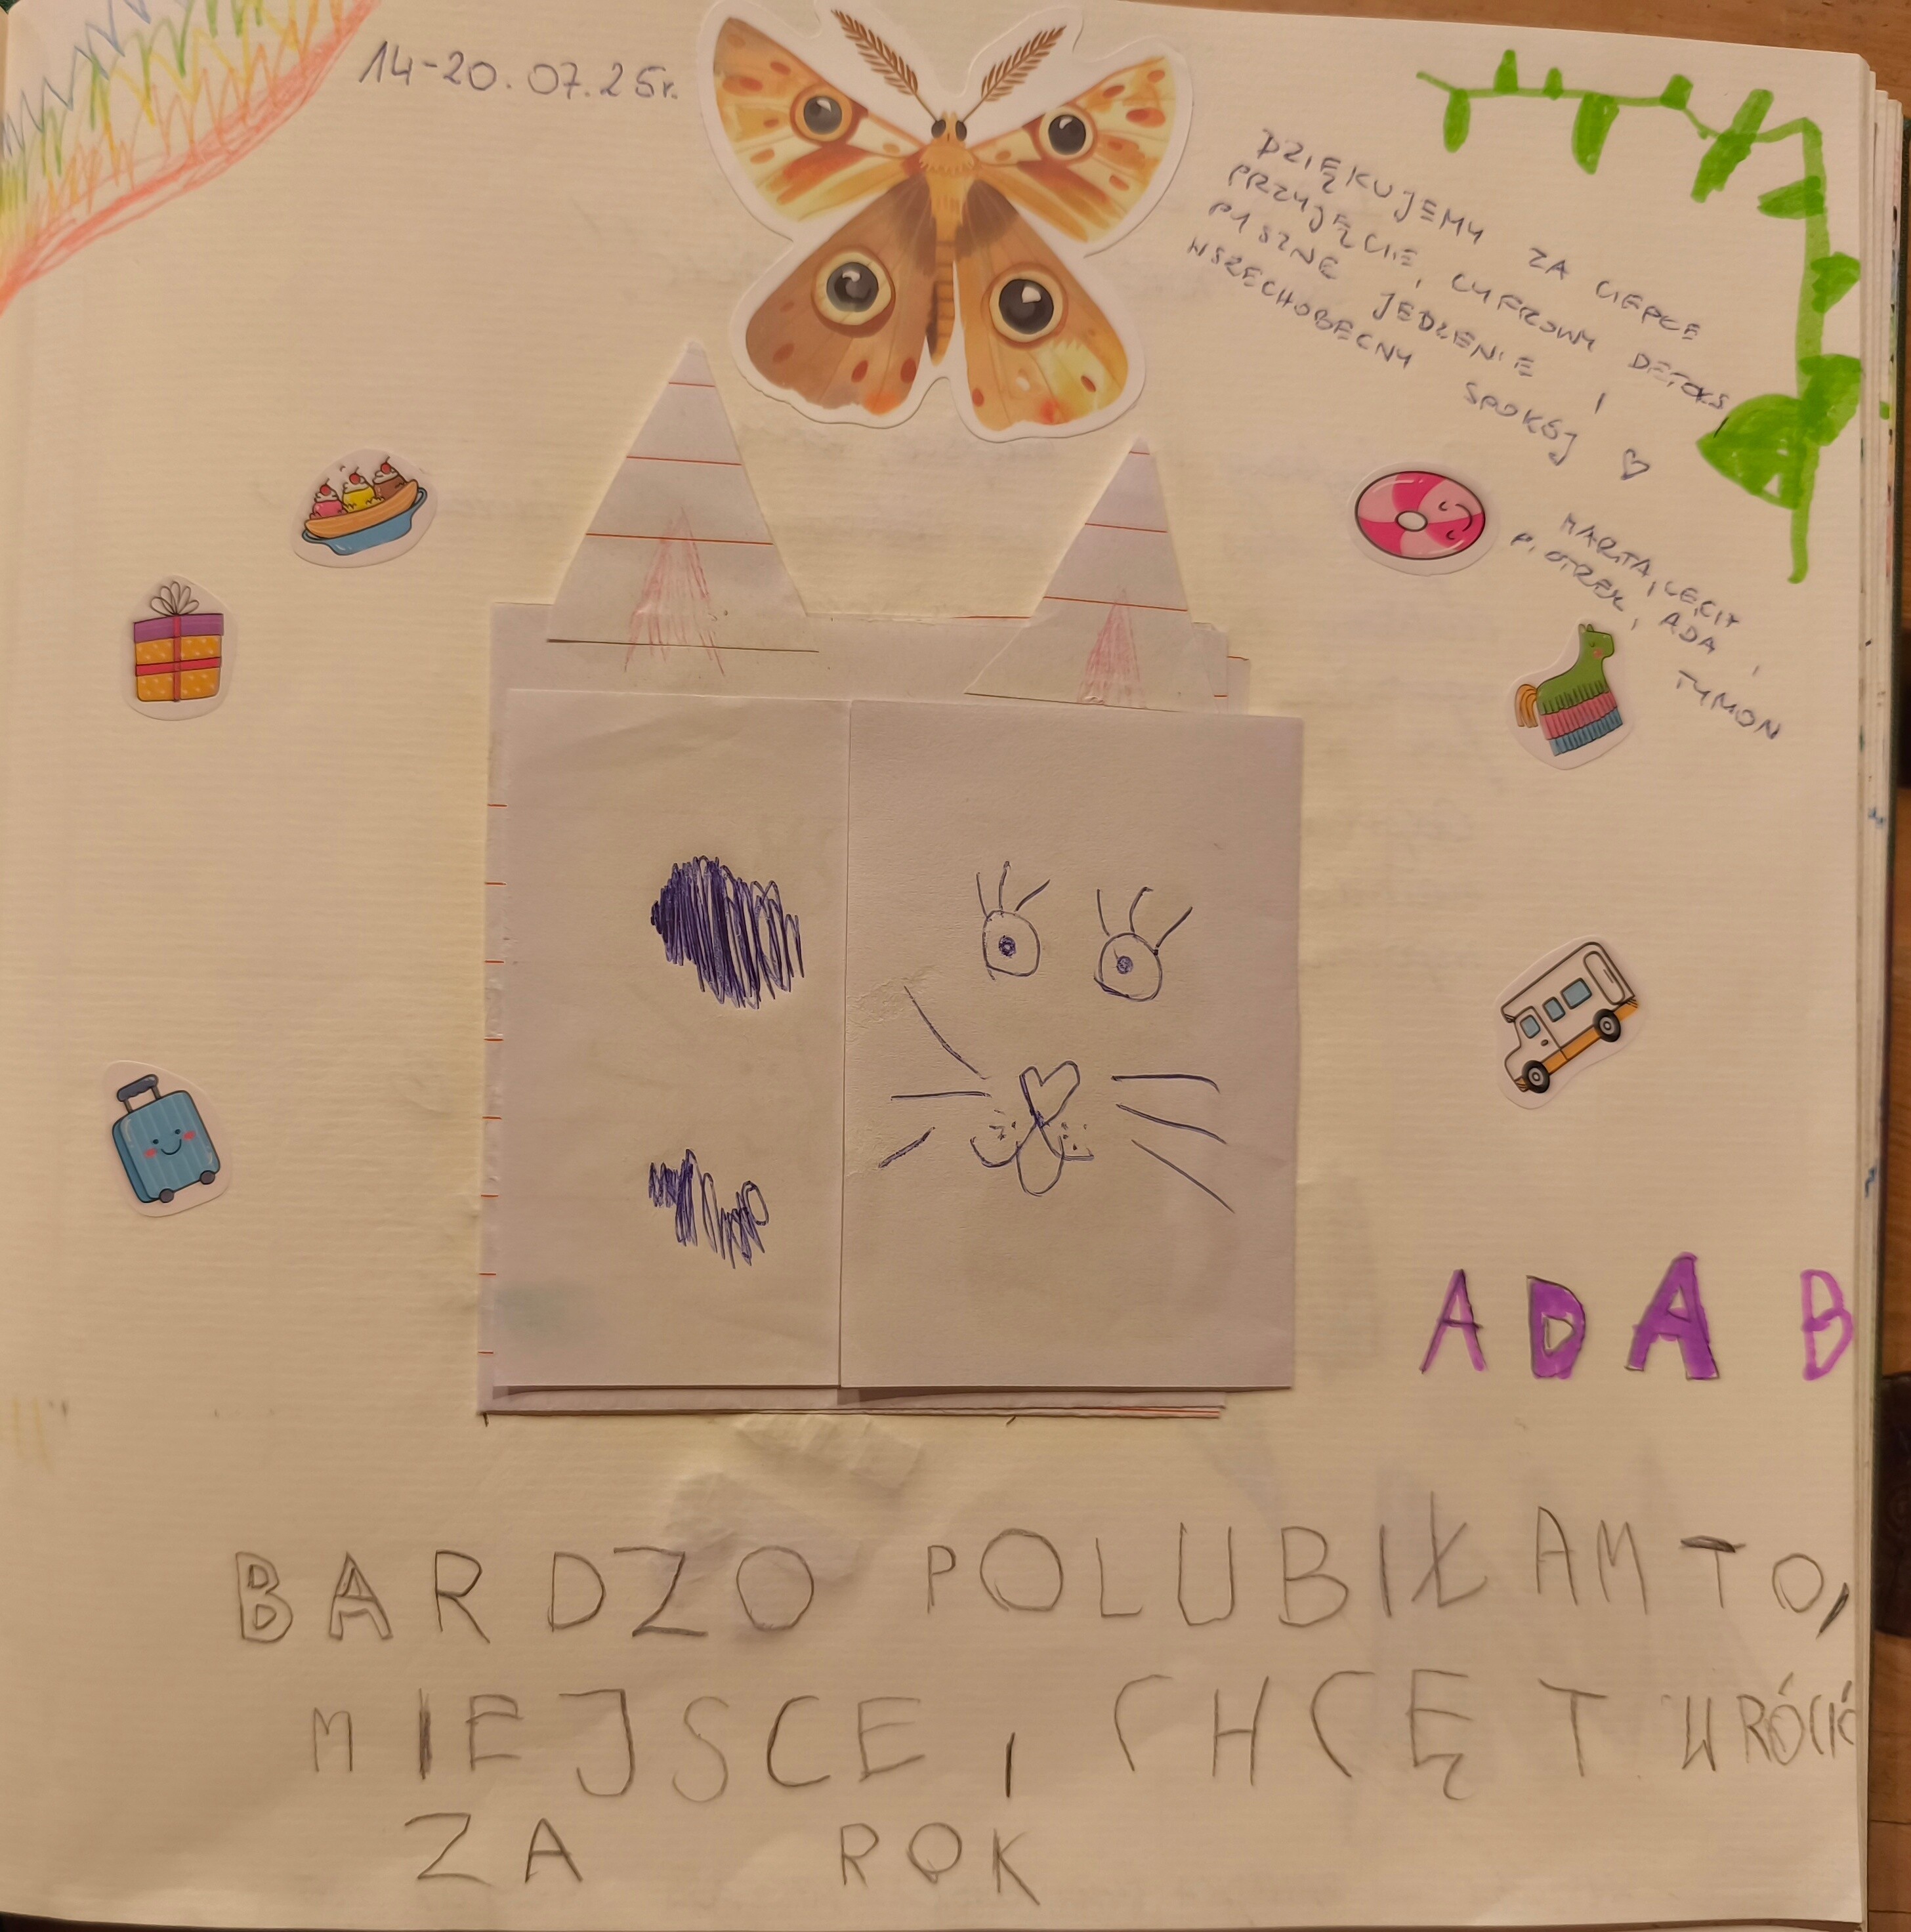 14-20.07.25r.
DZIĘKUJEMY ZA CIEPŁE
PRZYJĘCIE, CYFROWY DETOKS,
PYSZNE JEDZENIE I
WSZECHOBECNY SPOKÓJ ♡
MARTA,
PIOTREK, ADA,
TYMON
ADA B
BARDZO POLUBIŁAM TO,
MIEJSCE, CHCĘ T WRÓCIĆ
ZA ROK